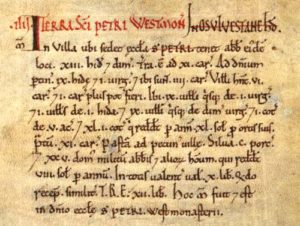 IIII. TERRA SC̃I PETRI WESTMON̄. IN OSULVESTANE HD̃.
In Villa ubi sedet æccl̃a S PETRI. tenet abb̃ ejd̃e
loci. xiii. hid̃ 7 dim̃. T̃ra. ẽ ad xi. car̃. Ad dñium
pen̄. ix. hidæ 7 i. virg̃. 7 ibi sun̄. iiii. car̃. Vill̃i hn̄t. vi.
car̃. 7 i. car̃ plus pot fieri. Ibi. ix. uill̃i q̃sq̨ de. i. virg̃.
7 i. uill̃s de. i. hida. 7 ix. uill̃i q̃sq̨ de dim̃ virg̃. 7 i. cot̃
de. v. ac̃. 7 xl. i. cot̃ q̇ redd̃t p̱ ann̄. xl. sol̃ p̱ ortis suis.
P̃tũ. xi. car̃. Past̃a ad pecun̄ uillæ. Silua. c. porc̃.
7 xx v. dom̃ militũ abb̃is 7 alioꝝ houm̃. qui redd̃t
viii. sol̃ p̱ annũ. In totis ualent̃ ual̃. x. lib̃. q̇do
recep̃. simil̃it̃. T.R.E. xii. lib̃. Hoc m̃ fuit 7 est
in dñio æccl̃æ S PETRI. westmonasterii.